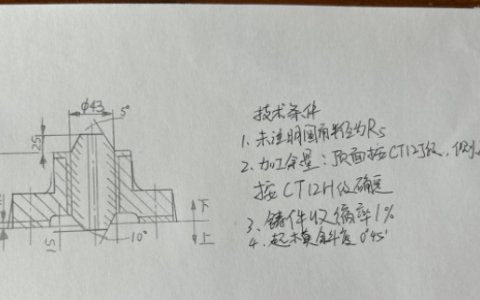 φ43
5°
25
下
上
15
10°
技术条件
1. 未注明圆角半径为R5
2. 加工余量：顶面按CT12J级，侧
按CT12H级确定
3、铸件收缩率1%
4. 起模斜度0°45'